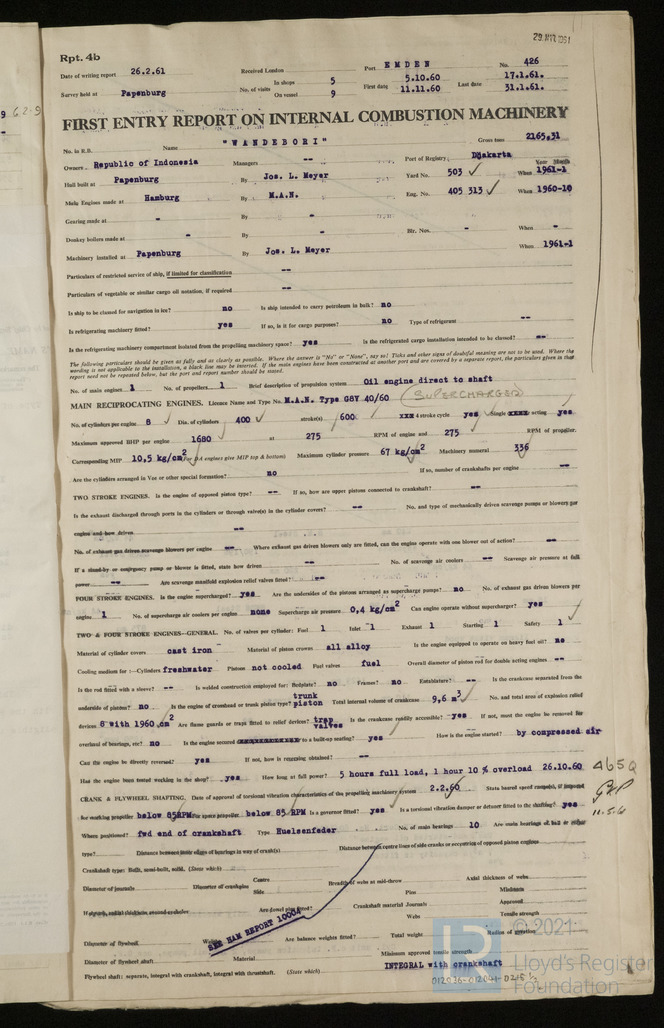 29 MAR 1961
Rpt. 4b
Date of writing report 26.2.61 Received London Port EMDEN No. 426
Survey held at Papenburg No. of visits In shops 5 On vessel 9 First date 5.10.60 11.11.60 Last date 17.1.61. 31.1.61.
FIRST ENTRY REPORT ON INTERNAL COMBUSTION MACHINERY
No. in R.B. Name "WANDEBORI" Gross tons 2165,31
Owners Republic of Indonesia Managers -- Port of Registry Djakarta
Year Month
Hull built at Papenburg By Jos. L. Meyer Yard No. 503 When 1961-1
Main Engines made at Hamburg By M.A.N. Eng. No. 405 313 When 1960-10
Gearing made at - By -
Donkey boilers made at - By - Blr. Nos. - When -
Machinery installed at Papenburg By Jos. L. Meyer When 1961-1
Particulars of restricted service of ship, if limited for classification --
Particulars of vegetable or similar cargo oil notation, if required --
Is ship to be classed for navigation in ice? no Is ship intended to carry petroleum in bulk? no
Is refrigerating machinery fitted? yes If so, is it for cargo purposes? no Type of refrigerant --
Is the refrigerating machinery compartment isolated from the propelling machinery space? yes Is the refrigerated cargo installation intended to be classed? --
The following particulars should be given as fully and as clearly as possible. Where the answer is "No" or "None", say so! Ticks and other signs of doubtful meaning are not to be used. Where the
wording is not applicable to the installation, a black line may be inserted. If the main engines have been constructed at another port and are covered by a separate report, the particulars given in that
report need not be repeated below, but the port and report number should be stated.
No. of main engines 1 No. of propellers 1 Brief description of propulsion system Oil engine direct to shaft
MAIN RECIPROCATING ENGINES. Licence Name and Type No. M.A.N. Type G8V 40/60 (SUPERCHARGED)
No. of cylinders per engine 8 Dia. of cylinders 400 stroke(s) 600 4 stroke cycle yes Single acting yes
Maximum approved BHP per engine 1680 at 275 RPM of engine and 275 RPM of propeller.
Corresponding MIP 10,5 kg/cm2 (For DA engines give MIP top & bottom) Maximum cylinder pressure 67 kg/cm2 Machinery numeral 336
Are the cylinders arranged in Vee or other special formation? no If so, number of crankshafts per engine --
TWO STROKE ENGINES. Is the engine of opposed piston type? -- If so, how are upper pistons connected to crankshaft? --
Is the exhaust discharged through ports in the cylinders or through valve(s) in the cylinder covers? -- No. and type of mechanically driven scavenge pumps or blowers per
engine and how driven --
No. of exhaust gas driven scavenge blowers per engine -- Where exhaust gas driven blowers only are fitted, can the engine operate with one blower out of action? --
If a stand-by or emergency pump or blower is fitted, state how driven -- No. of scavenge air coolers -- Scavenge air pressure at full
power -- Are scavenge manifold explosion relief valves fitted? --
FOUR STROKE ENGINES. Is the engine supercharged? yes Are the undersides of the pistons arranged as supercharge pumps? no No. of exhaust gas driven blowers per
engine 1 No. of supercharge air coolers per engine none Supercharge air pressure 0,4 kg/cm2 Can engine operate without supercharger? yes
TWO & FOUR STROKE ENGINES--GENERAL. No. of valves per cylinder: Fuel 1 Inlet 1 Exhaust 1 Starting 1 Safety 1
Material of cylinder covers cast iron Material of piston crowns all alloy Is the engine equipped to operate on heavy fuel oil? no
Cooling medium for:--Cylinders freshwater Pistons not cooled Fuel valves fuel Overall diameter of piston rod for double acting engines --
Is the rod fitted with a sleeve? -- Is welded construction employed for: Bedplate? no Frames? no Entablature? -- Is the crankcase separated from the
underside of pistons? no Is the engine of crosshead or trunk piston type? trunk piston Total internal volume of crankcase 9,6 m3 No. and total area of explosion relief
devices 8 with 1960 cm2 Are flame guards or traps fitted to relief devices? trap valves Is the crankcase readily accessible? yes If not, must the engine be removed for
overhaul of bearings, etc? no Is the engine secured to a built-up seating? yes How is the engine started? by compressed air
Can the engine be directly reversed? yes If not, how is reversing obtained? --
Has the engine been tested working in the shop? yes How long at full power? 5 hours full load, 1 hour 10 % overload 26.10.60
CRANK & FLYWHEEL SHAFTING. Date of approval of torsional vibration characteristics of the propelling machinery system 2.2.60 State barred speed range(s), if imposed
for working propeller below 85RPM For spare propeller below 85 RPM Is a governor fitted? yes Is a torsional vibration damper or detuner fitted to the shafting? yes
Where positioned? fwd end of crankshaft Type Huelsenfeder No. of main bearings 10 Are main bearings of ball or roller
type? Distance between inner edges of bearings in way of crank(s) Distance between centre lines of side cranks or eccentrics of opposed piston engines
Crankshaft type: Built, semi-built, solid. (State which)
Diameter of journals Diameter of crankpins Centre Side Breadth of webs at mid-throw Axial thickness of webs
Pins Minimum
If shrunk, radial thickness around eyeholes Are dowel pins fitted? Crankshaft material Journals Approved
Webs Tensile strength
SEE HAM REPORT 10004
Diameter of flywheel Weight Are balance weights fitted? Total weight Radius of gyration
Diameter of flywheel shaft Material Minimum approved tensile strength
Flywheel shaft: separate, integral with crankshaft, integral with thrustshaft. (State which) INTEGRAL with crankshaft
012036-012041-0215
© 2021
Lloyd's Register
Foundation